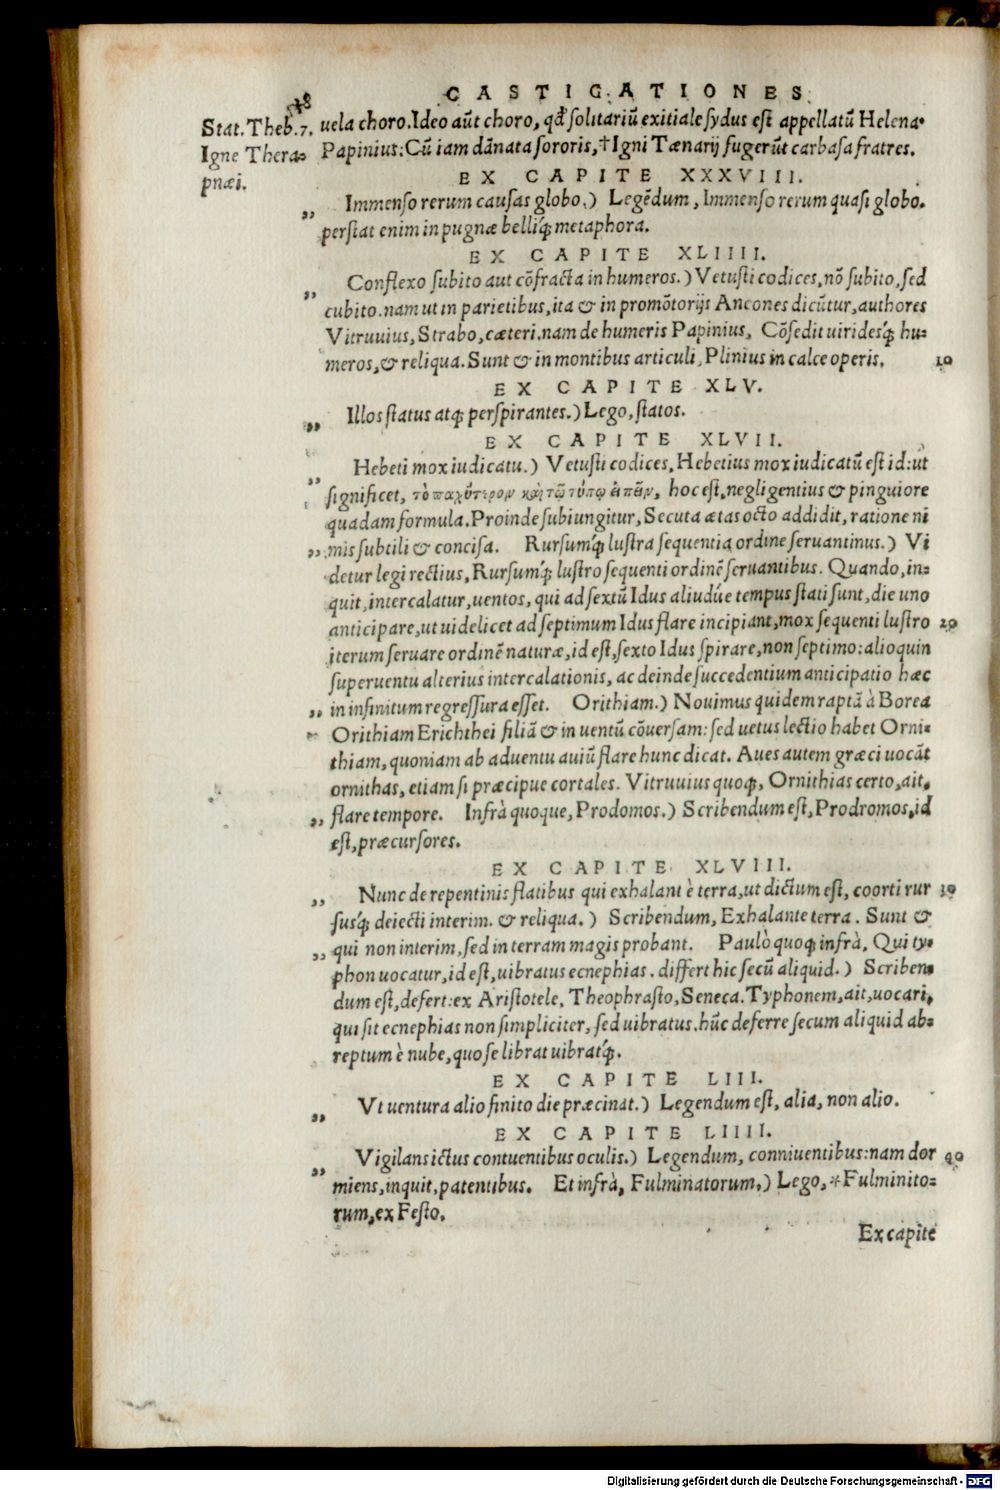 CASTIGATIONES
Stat. Theb. 7.
Igne Thera⸗
pnæi.
uela choro. Ideo aūt choro, qđ solitariū exitiale sydus est appellatū Helena.
Papinius: Cū iam dānata sororis, †Igni Tænarij fugerūt carbasa fratres.
EX CAPITE XXXVIII.
„ Immenso rerum causas globo.) Legēdum, Immenso rerum quasi globo.
perstat enim in pugnæ belliq́; metaphora.
EX CAPITE XLIIII.
„ Conflexo subito aut cōfracta in humeros.) Vetusti codices, nō subito, sed
cubito. nam ut in parietibus, ita & in promōtorijs Ancones dicūtur, authores
Vitruuius, Strabo, cæteri. nam de humeris Papinius, Cōsedit uiridesq́; hu⸗
meros, & reliqua. Sunt & in montibus articuli, Plinius in calce operis. 10
EX CAPITE XLV.
„ Illos status atq; perspirantes.) Lego, statos.
EX CAPITE XLVII.
„ Hebeti mox iudicatu.) Vetusti codices, Hebetius mox iudicatū est id: ut
significet, τὸ παχύτερον καὶ τῷ τύπῳ εἰπεῖν, hoc est, negligentius & pinguiore
quadam formula. Proinde subiungitur, Secuta ætas octo addidit, ratione ni
„ mis subtili & concisa. Rursumq́; lustra sequentia ordine seruantinus.) Vi
detur legi rectius, Rursumq́; lustro sequenti ordinē seruantibus. Quando, in⸗
quit, intercalatur, uentos, qui ad sextū Idus aliudúe tempus stati sunt, die uno
anticipare, ut uidelicet ad septimum Idus flare incipiant, mox sequenti lustro 20
iterum seruare ordinē naturæ, id est, sexto Idus spirare, non septimo: alioquin
superuentu alterius intercalationis, ac deinde succedentium anticipatio hæc
„ in infinitum regressura esset. Orithiam.) Nouimus quidem raptā à Borea
Orithiam Erichthei filiā & in uentū cōuersam: sed uetus lectio habet Orni⸗
thiam, quoniam ab aduentu auiū flare hunc dicat. Aues autem græci uocāt
ornithas, etiam si præcipue cortales. Vitruuius quoq;, Ornithias certo, ait,
„ flare tempore. Infrà quoque, Prodomos.) Scribendum est, Prodromos, id
est, præcursores.
EX CAPITE XLVIII.
„ Nunc de repentinis flatibus qui exhalant è terra, ut dictum est, coorti rur 30
susq́; deiecti interim. & reliqua.) Scribendum, Exhalante terra. Sunt &
„ qui non interim, sed in terram magis probant. Paulò quoq; infrà, Qui ty⸗
phon uocatur, id est, uibratus ecnephias. differt hic secū aliquid.) Scriben⸗
dum est, defert: ex Aristotele, Theophrasto, Seneca. Typhonem, ait, uocari,
qui sit ecnephias non simpliciter, sed uibratus. hūc deferre secum aliquid ab⸗
reptum è nube, quo se librat uibratq́;.
EX CAPITE LIII.
„ Vt uentura alio finito die præcinat.) Legendum est, alia, non alio.
EX CAPITE LIIII.
„ Vigilans ictus contuentibus oculis.) Legendum, conniuentibus: nam dor 40
miens, inquit, patentibus. Et infrà, Fulminatorum.) Lego, *Fulminito⸗
rum, ex Festo.
Ex capite
Digitalisierung gefördert durch die Deutsche Forschungsgemeinschaft - DFG